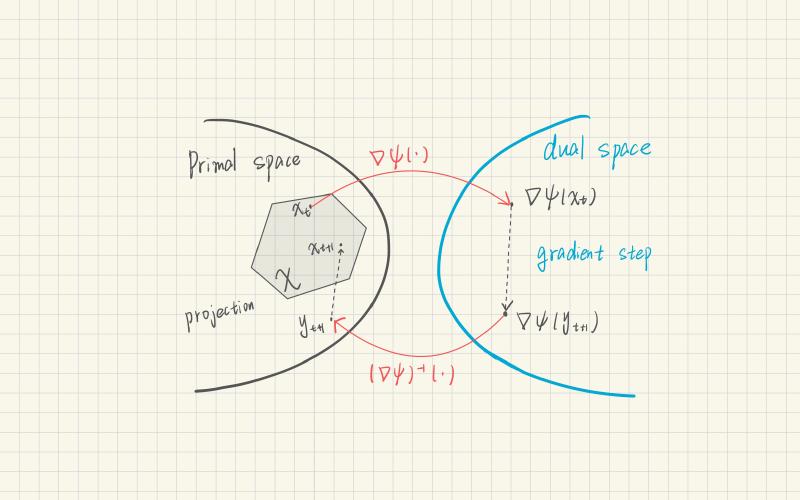 Primal space
∇ψ(·)
dual space
x_t
∇ψ(x_t)
x_{t+1}
gradient step
X
projection
y_{t+1}
∇ψ(y_{t+1})
(∇ψ)^{-1}(·)